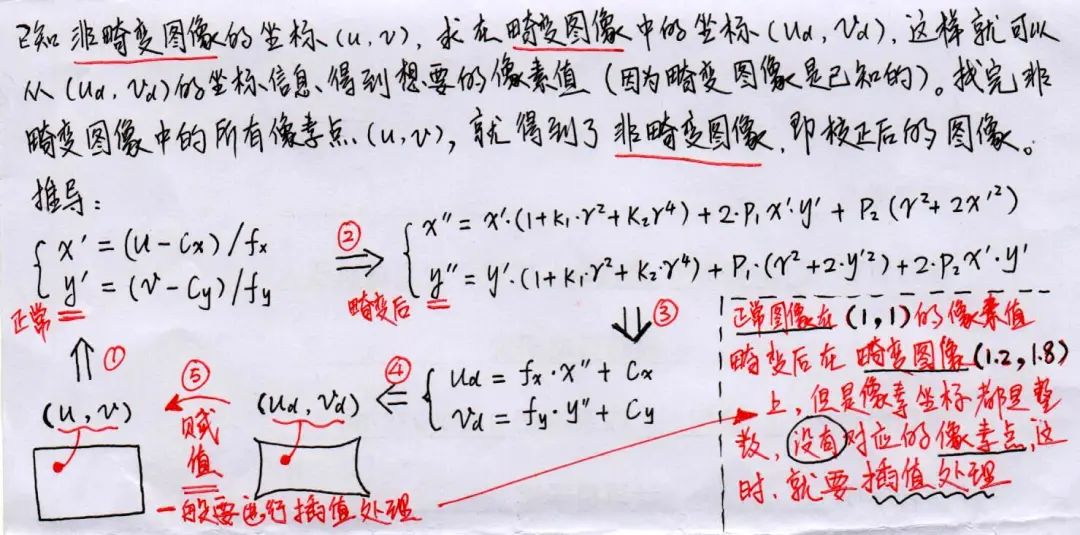 已知 非畸变图像的坐标 (u, v), 求在畸变图像中的坐标 (ud, vd), 这样就可以
从 (ud, vd) 的坐标信息、得到想要的像素值 (因为畸变图像是已知的)。找完非
畸变图像中的所有像素点 (u, v), 就得到了 非畸变图像, 即校正后的图像。
推导:
x' = (u - Cx) / fx
y' = (v - Cy) / fy
正常
②
x'' = x'·(1+k1·r²+k2r⁴) + 2·P1x'·y' + P2(r²+2x'²)
y'' = y'·(1+k1·r²+k2·r⁴) + P1·(r²+2·y'²) + 2·P2x'·y'
畸变后
③
ud = fx·x'' + Cx
vd = fy·y'' + Cy
④
①
(u, v)
⑤
赋值
(ud, vd)
一般要进行插值处理
正常图像在 (1,1) 的像素值
畸变后在 畸变图像 (1.2, 1.8)
上, 但是像素坐标都是整
数, 没有对应的像素点, 这
时、就要插值处理